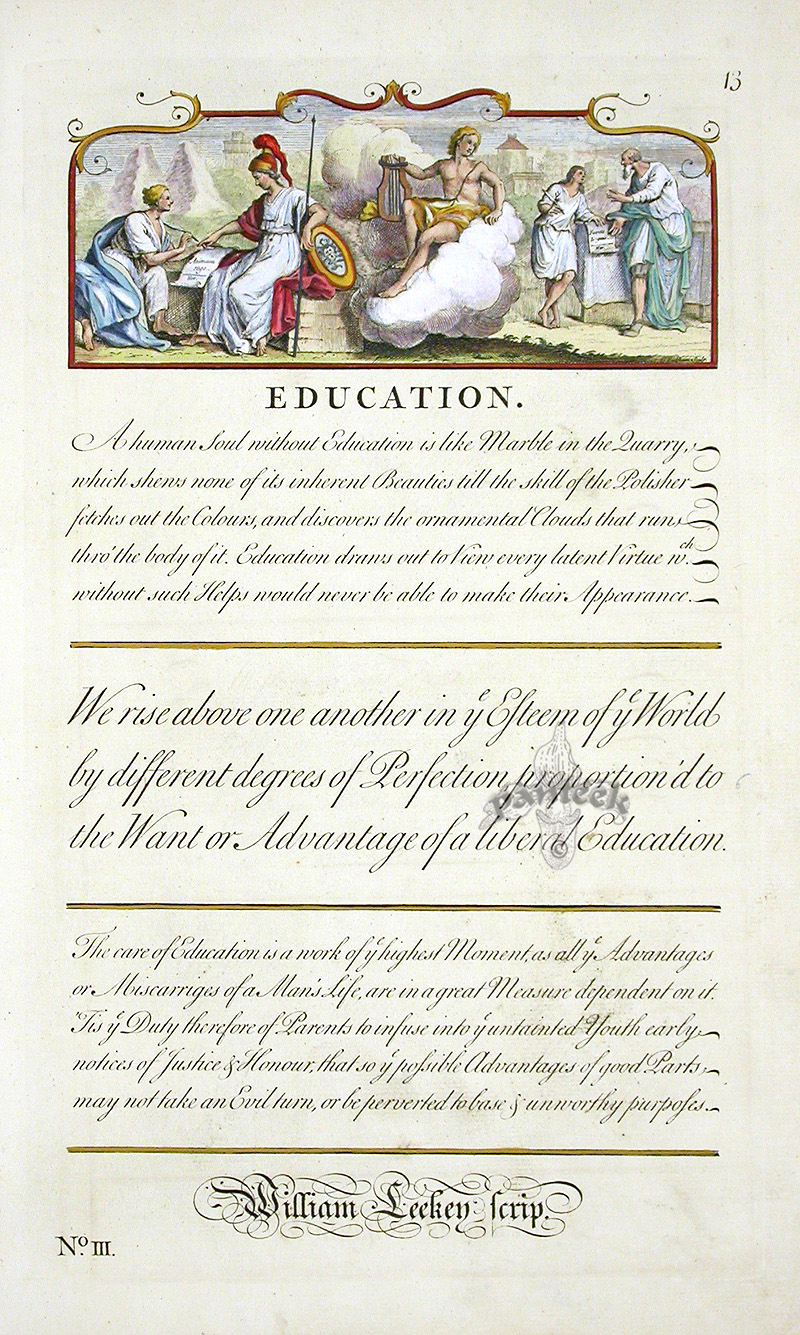 13
EDUCATION.
A human Soul without Education is like Marble in the Quarry,
which shews none of its inherent Beauties till the skill of the Polisher
fetches out the Colours, and discovers the ornamental Clouds that run
thro' the body of it. Education draws out to View every latent Virtue w.ch
without such Helps would never be able to make their Appearance.
We rise above one another in yᵉ Eſteem of yᵉ World
by different degrees of Perfection proportion'd to
the Want or Advantage of a liberal Education.
panteek
©
The care of Education is a work of yᵉ highest Moment, as all yᵉ Advantages
or Miscarriges of a Man's Life, are in a great Measure dependent on it.
'Tis yᵉ Duty therefore of Parents to infuse into yᵉ untainted Youth early
notices of Justice & Honour, that so yᵉ poſsible Advantages of good Parts,
may not take an Evil turn, or be perverted to base & unworthy purpoſes.
William Leekey ſcrip.
N.º III.